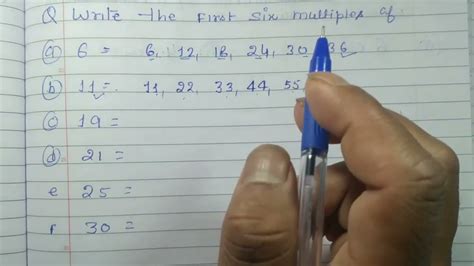 Q Write the first six multiples of.
(a) 6 = 6, 12, 18, 24, 30, 36
(b) 11 = 11, 22, 33, 44, 55
(c) 19 =
(d) 21 =
e 25 =
f 30 =